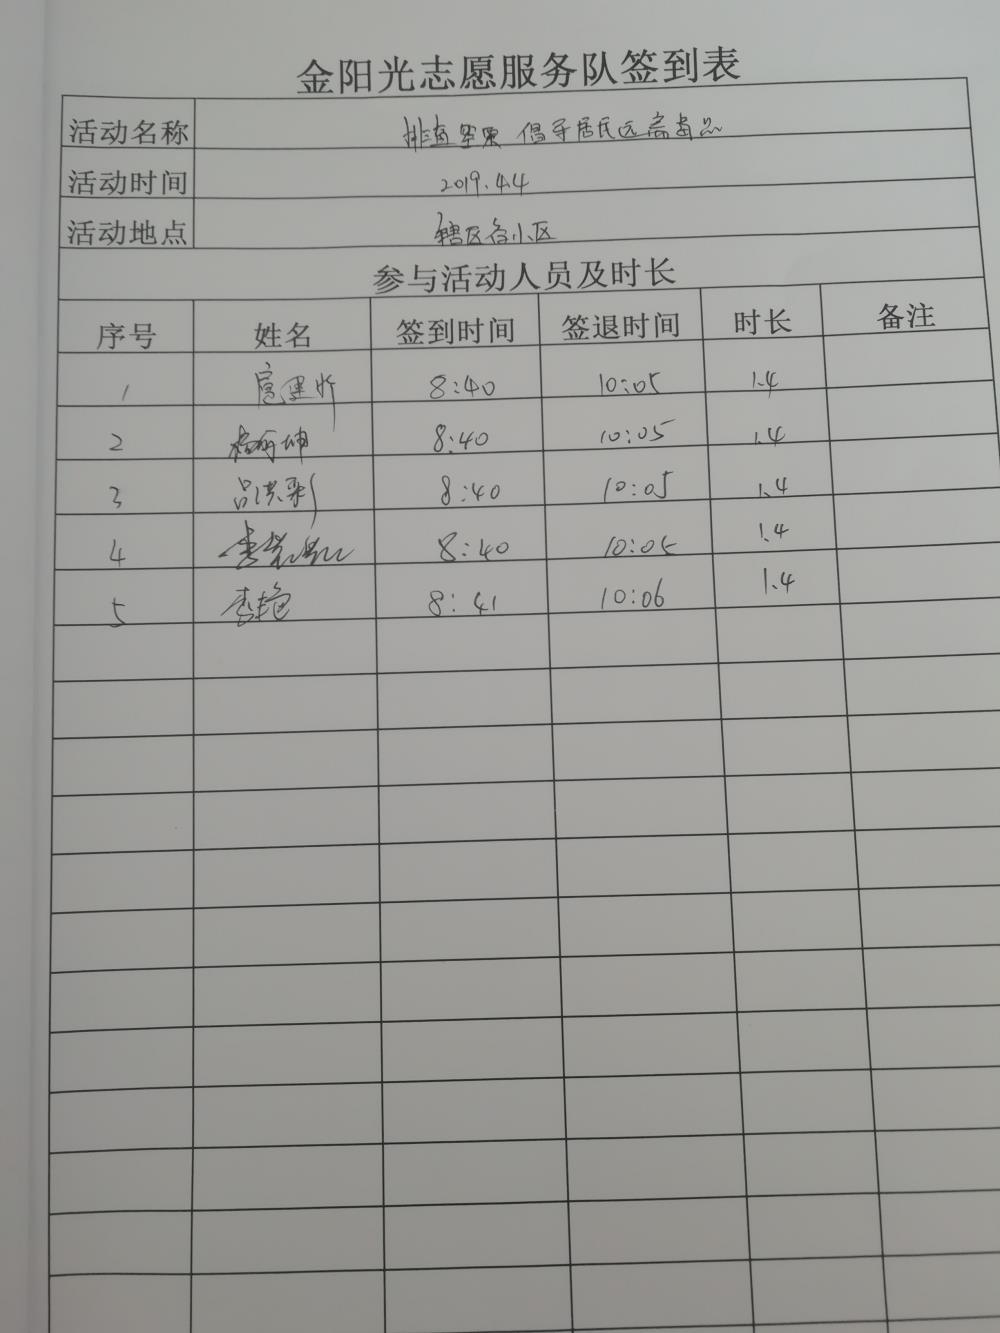 金阳光志愿服务队签到表
活动名称 排查罂粟 倡导居民远离毒品
活动时间 2019.4.4
活动地点 辖区各小区
参与活动人员及时长
序号 姓名 签到时间 签退时间 时长 备注
1 8:40 10:05 1.4
2 8:40 10:05 1.4
3 吕洪彩 8:40 10:05 1.4
4 8:40 10:05 1.4
5 李艳 8:41 10:06 1.4